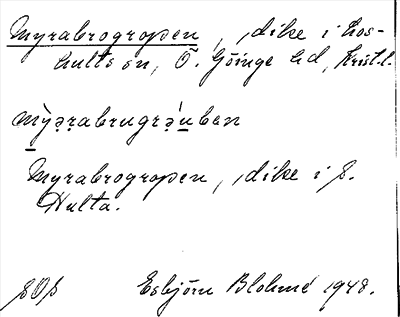 Myrabrogropen, dike i Los-
hults sn, Ö. Göinge hd, Krist. l.
Myrabrogropen, dike i
Hulta.
Esbjörn Blohmé 1948.